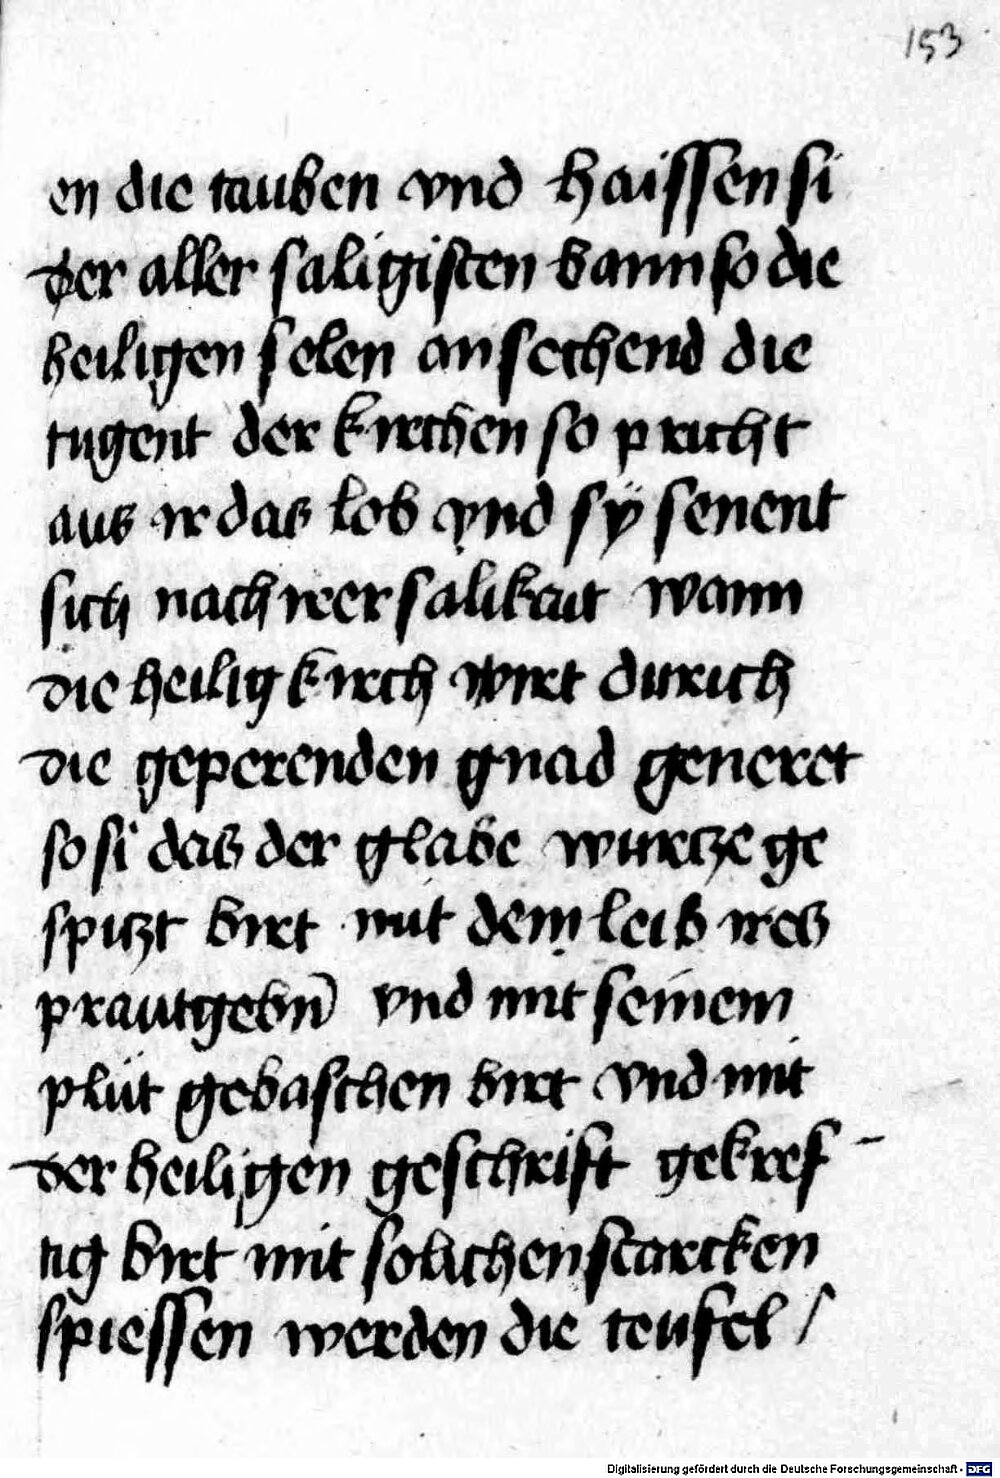 153
en die tauben vnd haissen si
der aller saligisten bann so die
heiligen selen an sechend die
tugent der kirchen so pricht
aus ir das lob vnd sÿ senent
sich nach irer salikait wann
die heilig kirch wirt durich
die geperenden gnad generet
so si das der glabe wurcze ge
spiczt birt mit dem leib ires
prautgebn̄ vnd mit seinem
plüt gebaschen birt vnd mit
der heiligen geschrift gekref-
tig birt mit solichen starcken
spiessen werden die teufel /
Digitalisierung gefördert durch die Deutsche Forschungsgemeinschaft - DFG